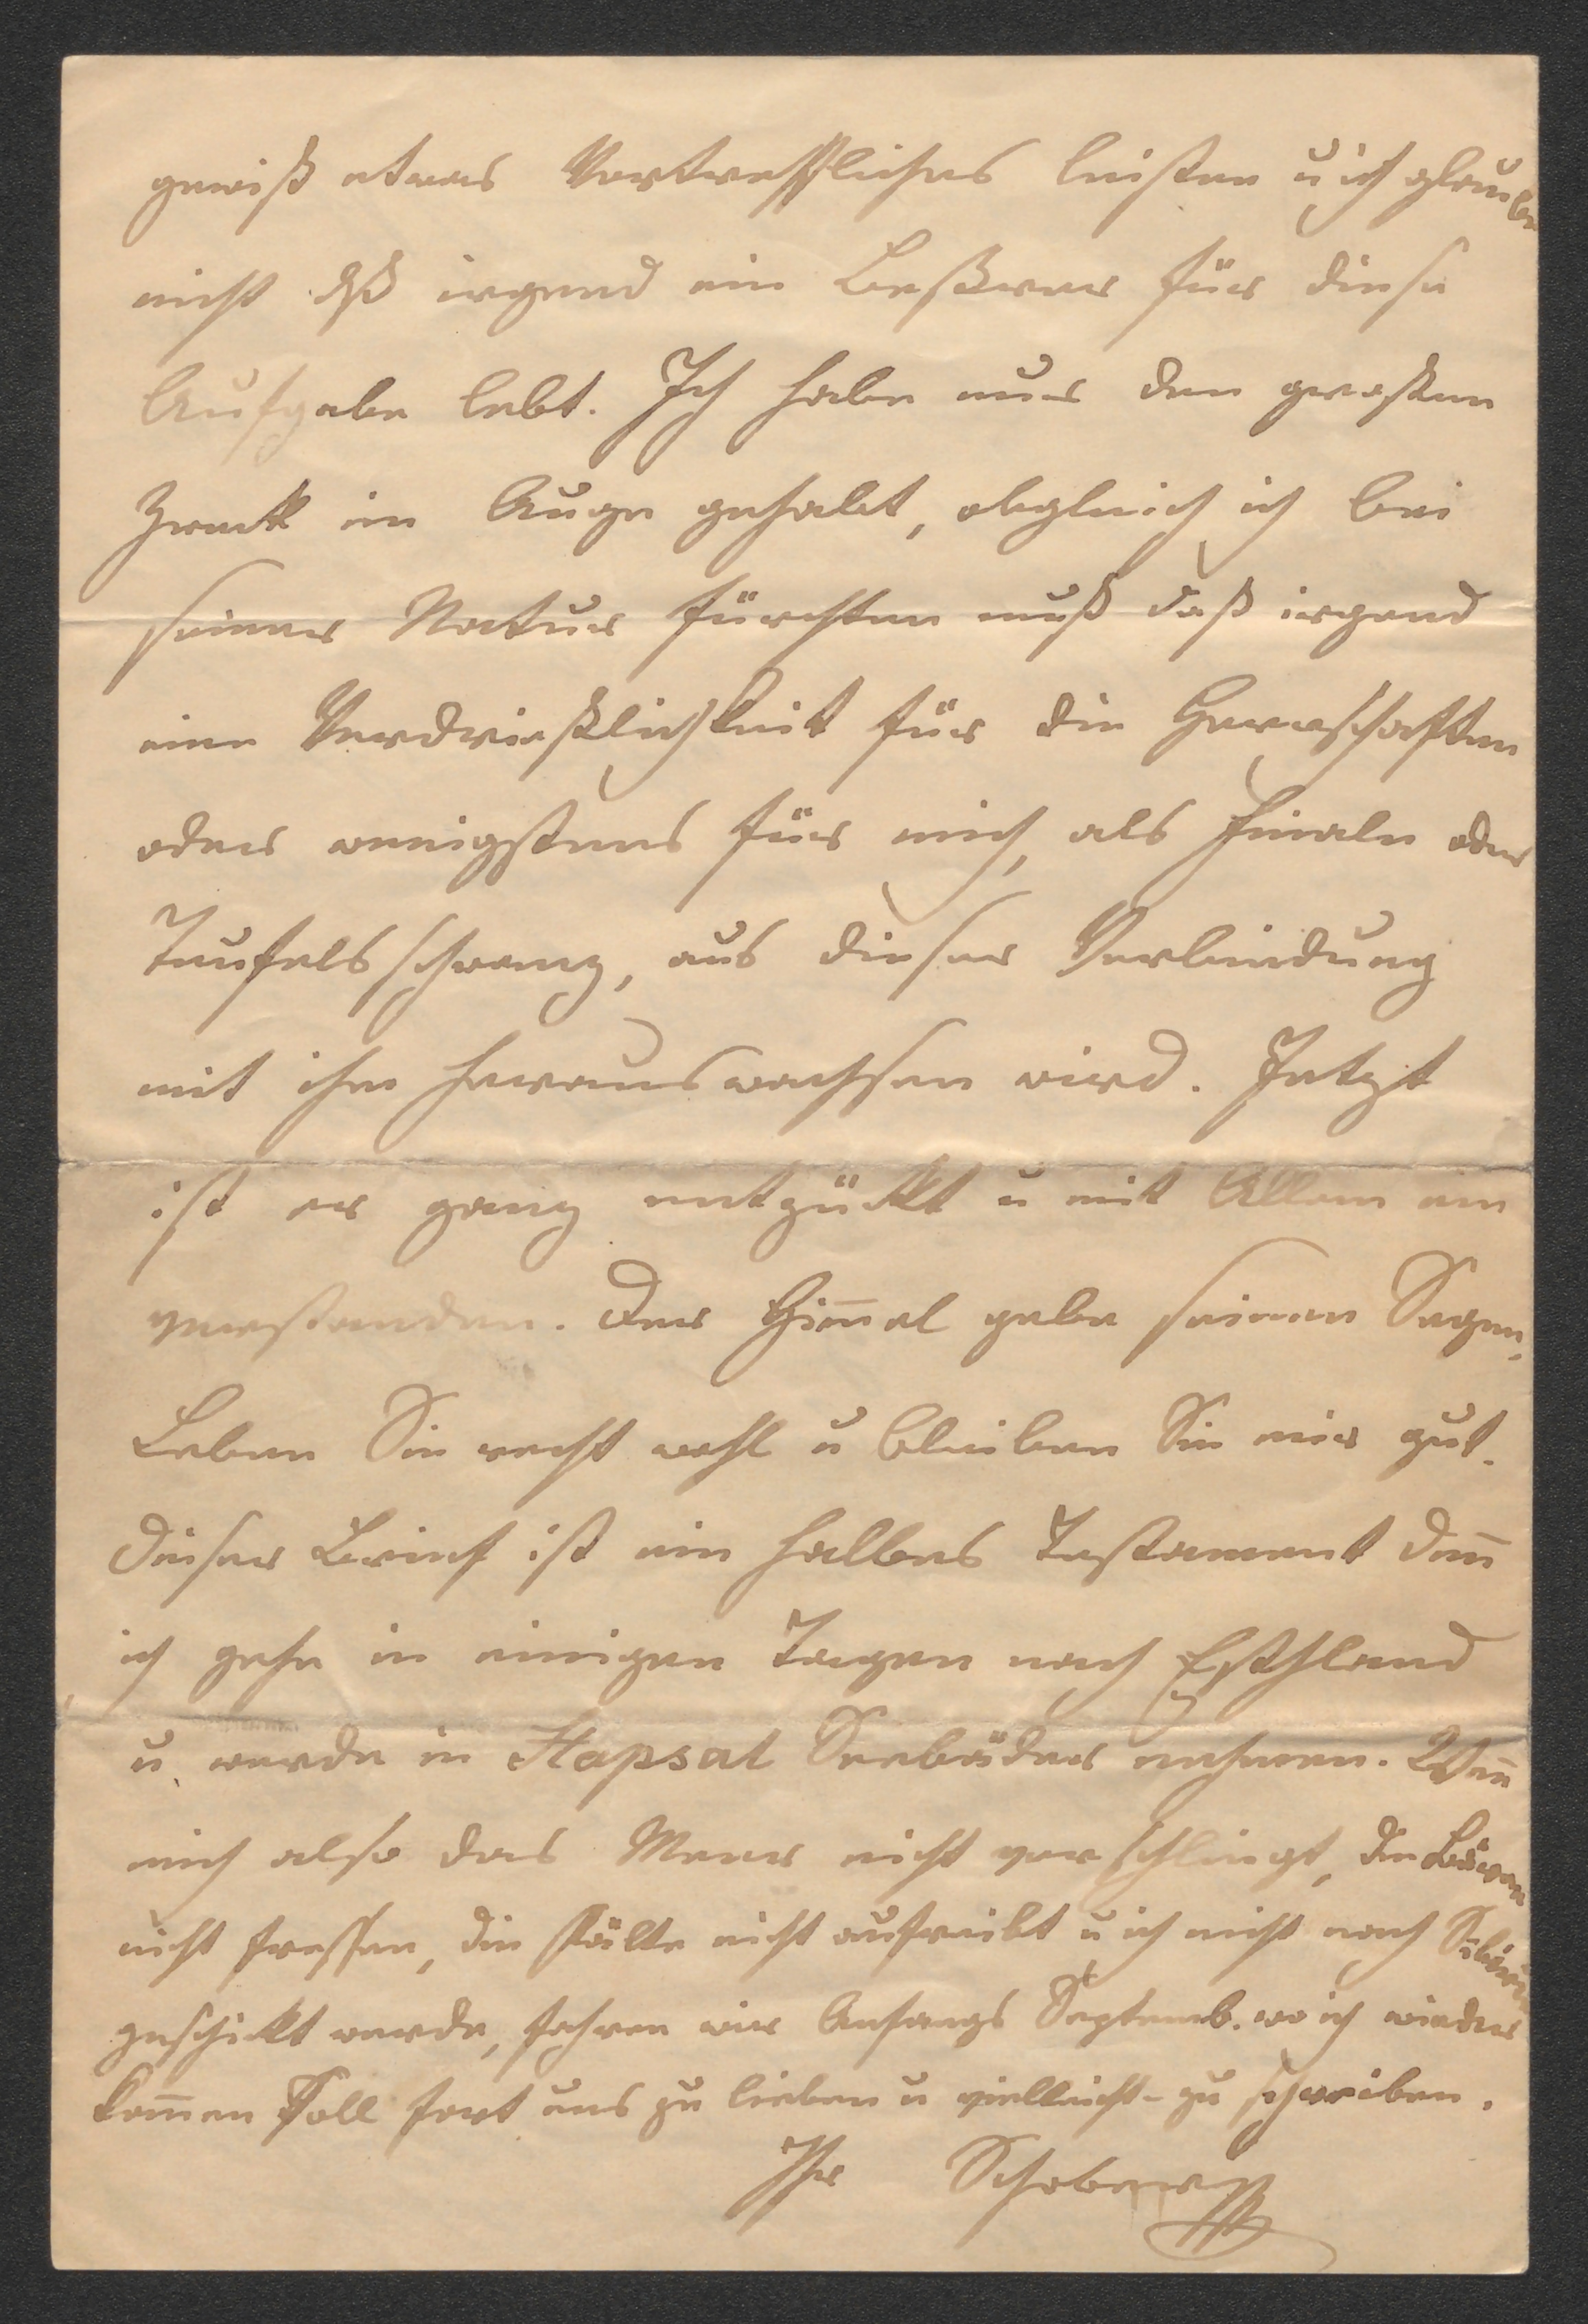 gewiß etwas Vortreffliches leisten u ich glaube
nicht dß irgend ein Beßerer für diese
Aufgabe lebt. Ich habe nur den großen
Zweck im Auge gehabt, obgleich ich bei
seiner Natur fürchten muß daß irgend
eine Verdrießlichkeit für die Herrschaften
oder wenigstens für mich, als Finale oder
Teufelsschwanz, aus dieser Verbindung
mit ihm herauswachsen wird. Jetzt
ist er ganz entzückt u mit Allem ein
verstanden. Der Him̄el gebe seinen Segen.
Leben Sie recht wohl u bleiben Sie mir gut.
Dieser Brief ist ein halbes Testament den̄
ich gehe in einigen Tagen nach Esthland
u. werde in Hapsal Seebäder nehmen. Wen̄
mich also das Meer nicht verschlingt, die Bären
nicht fressen, die Kälte nicht aufreibt u ich nicht nach Sibirien
geschickt werde, fahren wir Anfangs Septemb. wo ich wieder
kom̄en soll fort uns zu lieben u vielleicht zu schreiben.
Ihr Schober